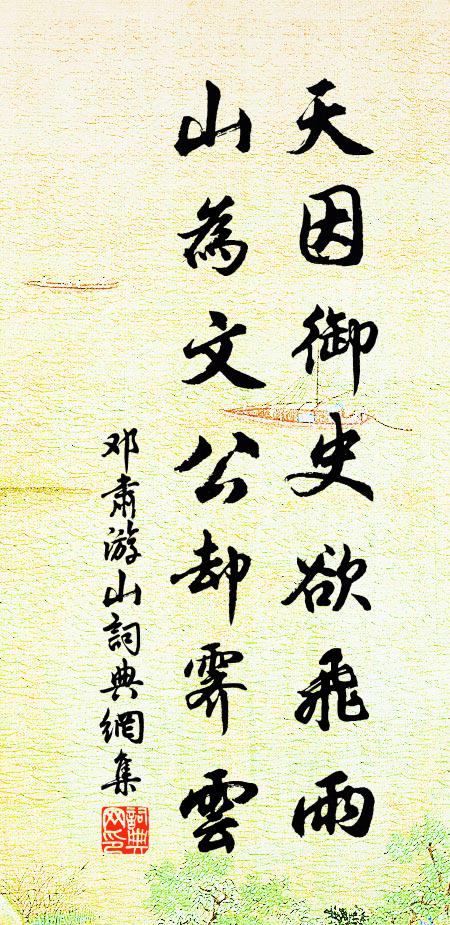 天因御史欲飛雨
山為文公却霽雲
邓肅游山詞典網集
詞典網印